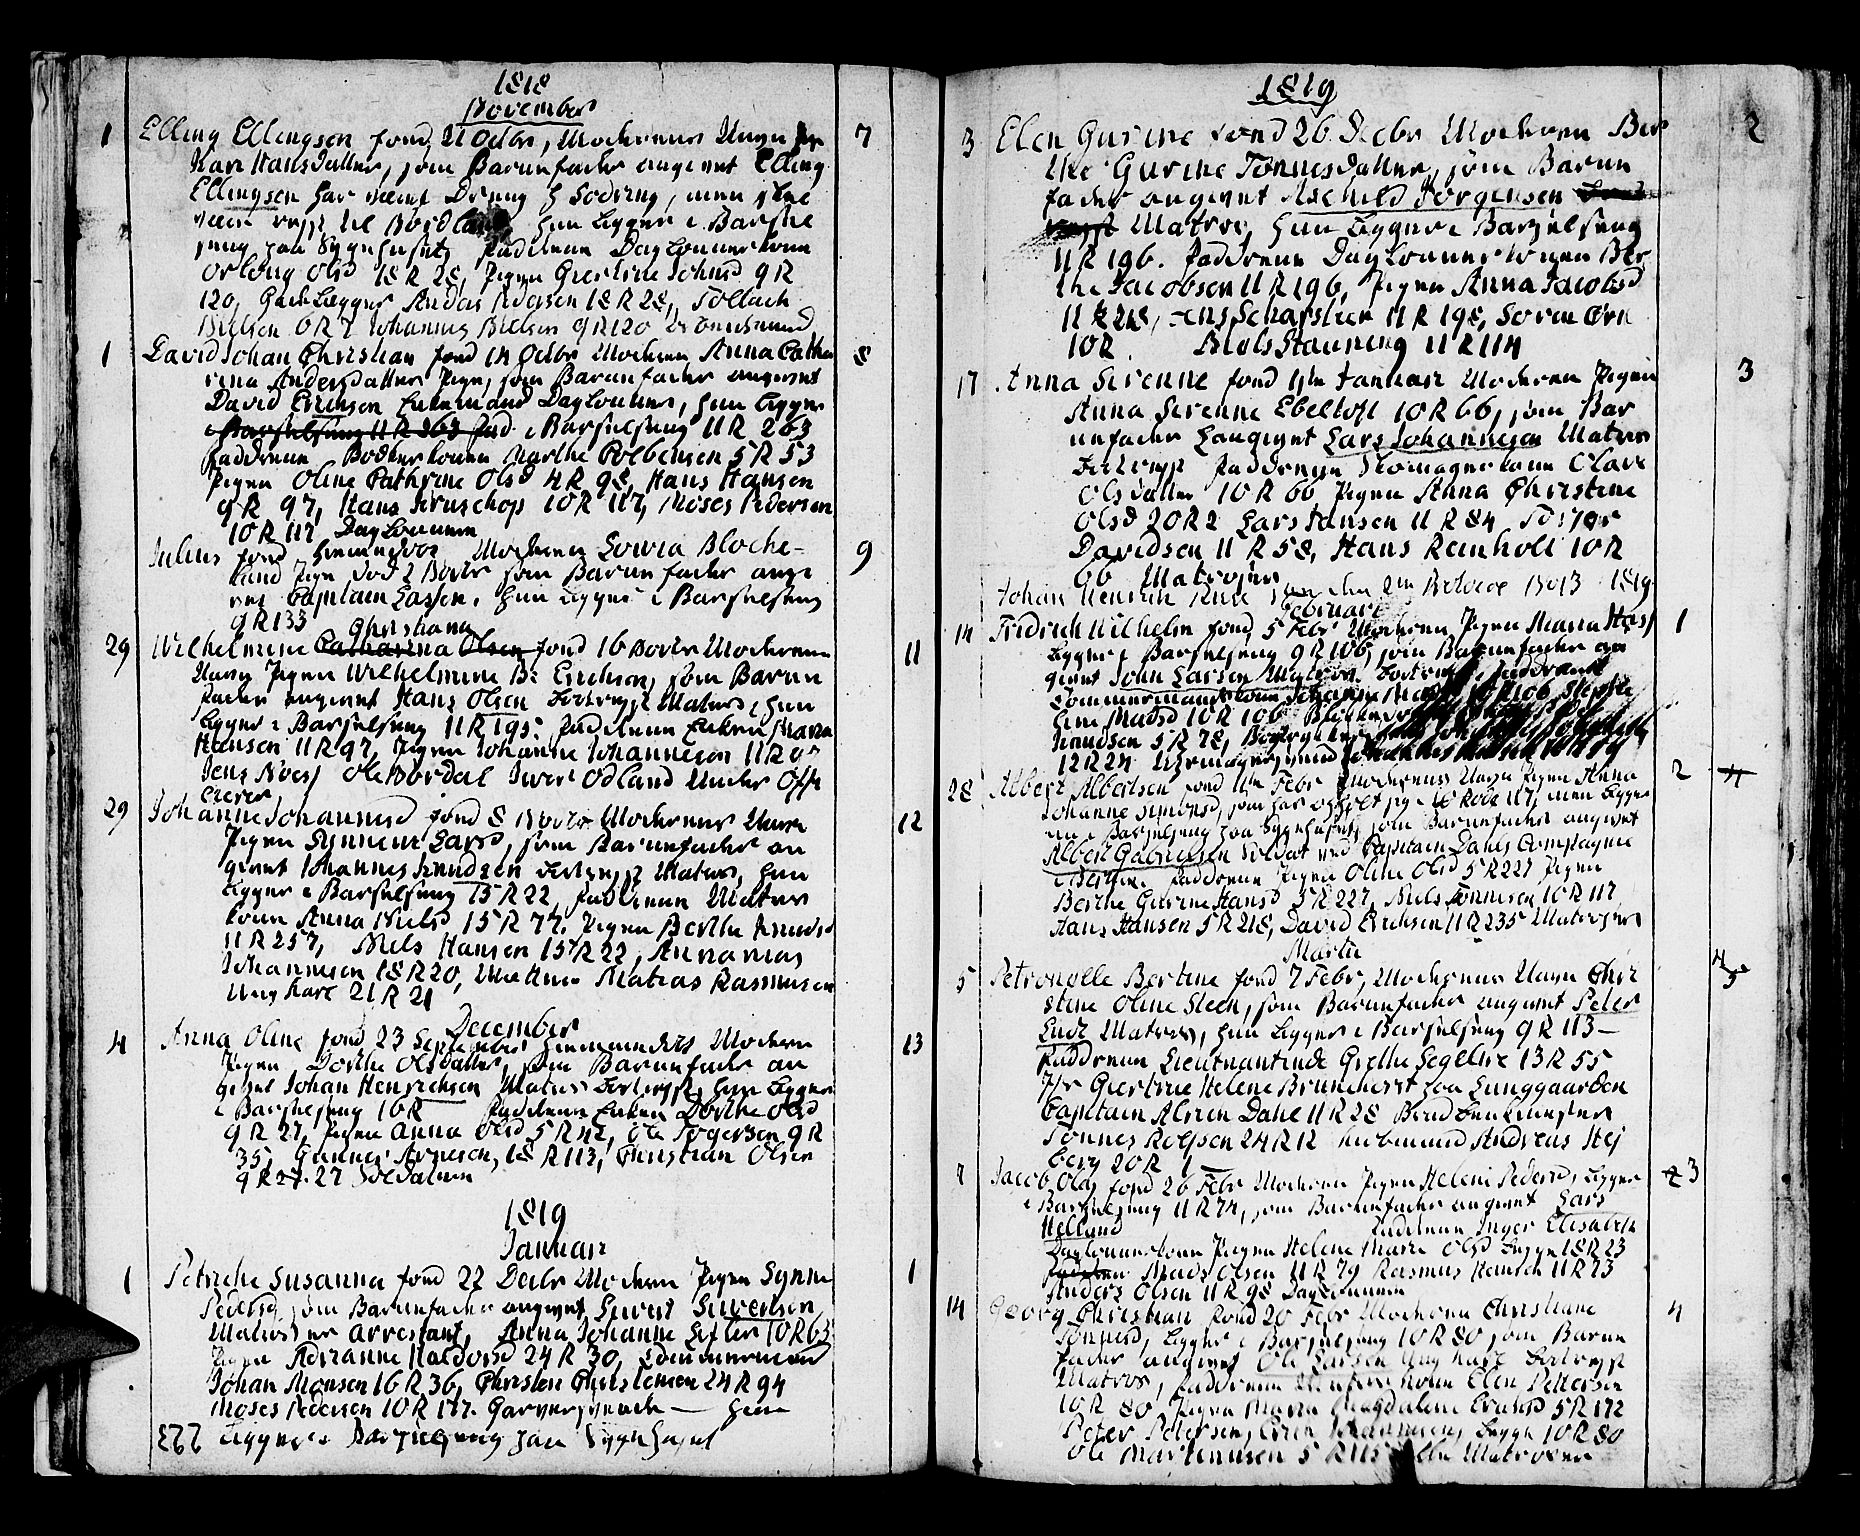 1818
November
1 Elling Ellingsen fød 21 Octbr, Moderens Navn er 7
Kari Hans datter, som Barnefader angivet Elling
Ellingsen har været Dreng h Søding, men skal
være rejst til Nordland hun ligger i Barsel
seng paa Sygehuset, Faddrene Daglønnerkone
Olsd 18 R 28, Pigen Giertrue Johnsd 9 R
120, Andas Pedersen 18 R 28, Tollach
Nielsen 6 R 2 Johannes Nielsen 9 R 120
1 David Johan Christian fød 14 Octbr Moderen Anna Catha 8
rina Andersdatter Pige, som Barnefader angivet
David Erichsen Enkemand Daglønner, hun ligger
i Barselseng 11 R 263 i Barselseng 11 R 263
Faddrene Bødkerkonen Marthe Colbensen 5 R 53
Pigen Oline Cathrine Olsd 4 R 98, Hans Hansen
9 R 97, Hans Kruschop 10 R 117, Moses Pedersen
10 R 117 Daglønnere
Julius fød hjemmedøbt Moderen Lovia Bloche- 9
land Pige som Barnefader angi
vet Capitain Lassen, hun ligger i Barselseng
9 R 133
Christiana
29 Wilhelmine Catharina Olsen fød 16 Novbr Moderens 11
Navn Pigen Wilhelmine B: Erichsen, som Barne
fader angivet Hans Olsen bortrejst Matros, hun
ligger i Barselseng 11 R 195: Faddrene Enken Maria
Hansen 11 R 97, Pigen Johanne Johannesen 11 R
Jens Noess Ole Nordal Iver Odland Under Offi
cierer
29 Johanne Johannesd fød 8 Novbr Moderens Navn 12
Pigen Synneue Larsd, som Barnefader an
givet Johannes Knudsen bortrejst Matros, hun
ligger i Barselseng 15 R 22, Faddrene Matros
kone Anna Nielsd 15 R 77. Pigen Berthe Knudsd
11 R 257, Niels Hansen 15 R 22, Annanias
Johannesen 18 R 20, Matias Rasmusen
Ung karl 21 R 21
December
4 Anna Oline fød 23 September hjemmedøbt Moderen 13
Pigen Dorthe Olsdatter, som Barnefader an
givet Johan Henrichsen Matros bortrejst, hun ligger
i Barselseng 10 R Faddrene Enken Dorthe Olsd
9 R 27, Pigen Anna Olsd 5 R 42, Ole Togersen 9 R
35, Gunner Arnesen, 18 R 113, Christian Olsen
9 R 27. 27 Soldatere
1819
Januar
1 Petriche Susanna fød 22 Decbr Moderen Pigen Synne 1
Pedersd, som Barnefader angivet Siwert Siwertsen
Matros er arrestant, Anna Johanne Sifter 10 R 63
Pigen Adrianne Haldorsd 24 R 30, Tømmermand
Johan Monsen 16 R 36, Christen Christensen 24 R 94
Moses Pedersen 10 R 117. Garversvend — hun
223 ligger i Barselseng paa Sygehuset
1819
3 Elen Gurine fød 26 Decbr Moderen Ber 2
the Gurine Tønnesdatter, som Barne
fader angivet Jørgensen
Matros, hun ligger i Barselseng
11 R 196. Faddrene Daglønnerkonen Ber
the Jacobsen 11 R 196, Pigen Anna Jacobsd
11 R 218, Jens Schafstien 11 R 198, Søren Ørn
10 R Niels Stauning 11 R 114
17 Anna Sirenne fød 1ste Januar Moderen Pigen 3
Anna Sirenne Ebeltoft 10 R 66, som Bar
nefader angivet Lars Johannesen Matros
bortrejst Faddrene Skomagerkone Olave
Olsdatter 10 R 66 Pigen Anna Christine
Olsd 20 R 2 Lars Jansen 11 R 84
Davidsen 11 R 58, Hans Reinholt 10 R
66 Matroser
Johan Henrich 1819
Februari
14 Fridrich Wilhelm fød 5 Febr Moderen Pigen Maria Hass 1
ligger i Barselseng 9 R 106, som Barnefader an
givet John Larsen Matros, bortrejst, Faddrene
Tømmermandskone Johanne
line Madsd 10 R 106
Knudsen 5 R 78,
12 R 24 Uhrmagersvend
28 Albert Albertsen fød 11te Febr Moderens Navn Pigen Anna 2 4
Johanne Simonsd, som har opholt sig i 10 Rode 117, men ligger
nu i Barselseng paa Sygehuset, som Barnefader angivet
Albert Gabrielsen Soldat ved Capitain Dahls Compagnie
i Bergen. Faddrene Pigen Oline Olsd 5 R 227 Pigen
Berthe Gurine Hansd 5 R 227, Niels Tønnesen 10 R 117,
Hans Hansen 5 R 218, David Erichsen 11 R 235 Matroser
Martii
5 Petronelle Bertine fød 7 Febr, Moderens Navn Chri 4 5
stine Oline Steen, som Barnefader angivet Peter
Lund Matros, hun ligger i Barselseng 9 R 113—
Faddrene Lieutnantinde Grethe Segelcke 13 R 55
Giertrue Helene Brunchorst paa Lunggaarden
Capitain Dahl 11 R 28
Tønnes Rolfsen 24 R 12 Andreas Hej
berg 20 R 1
7 Jacob Olai fød 26 Febr Moderen Pigen Heleni Pedersd, ligger 2 3
i Barselseng 11 R 74, som Barnefader angivet Lars
Helland Faddrene Inger Elisabeth
Daglønnerkone Pigen Helene Marie Olsd begge 18 R 23
Faddrene Mads Olsen 11 R 79 Rasmus Hansen 11 R 73
Anders Olsen 11 R 98 Daglønnere
14 Georg Christian fød 20 Febr Moderen Christiane 4
Tønnesd, ligger i Barselseng 10 R 80 som Barne
fader angivet Ole Larsen Ung karl bortrejst
Matros, Faddrene Elen Pettersen
10 R 80 Pigen Maria Magdalene 5 R 172
Peter Petersen, begge 10 R 80
Ole Martinusen 5 R 115 alle Matroser